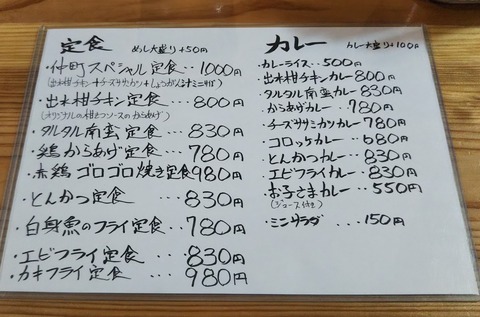 定食 めし大盛り+50円
・仲町スペシャル定食・・1000円
(出米柑チキン+チーズササミカツ+しょうが
・出米柑チキン定食・・・800円
(オリジナルの柑とソースのからあげ)
・タルタル南蛮定食・・・830円
・鶏からあげ定食・・・780円
・赤鶏ゴロゴロ焼き定食980円
・とんかつ定食・・・830円
・白身魚のフライ定食・・780円
・エビフライ定食・・・830円
・カキフライ定食・・・980円
カレー カレー大盛り+100円
・カレーライス・・500円
・出米柑チキンカレー800円
・タルタル南蛮カレー830円
・からあげカレー・・780円
・チーズササミカツカレー780円
・コロッケカレー・・680円
・とんかつカレー・・830円
・エビフライカレー・・830円
・お子さまカレー・・550円
(ジュース付き)
・ミニサラダ・・・150円